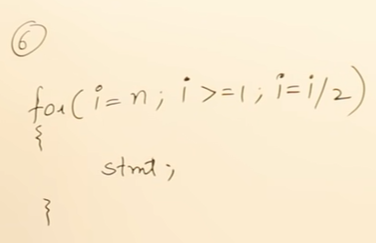 6
for(i=n; i>=1; i=i/2)
{
stmt;
}